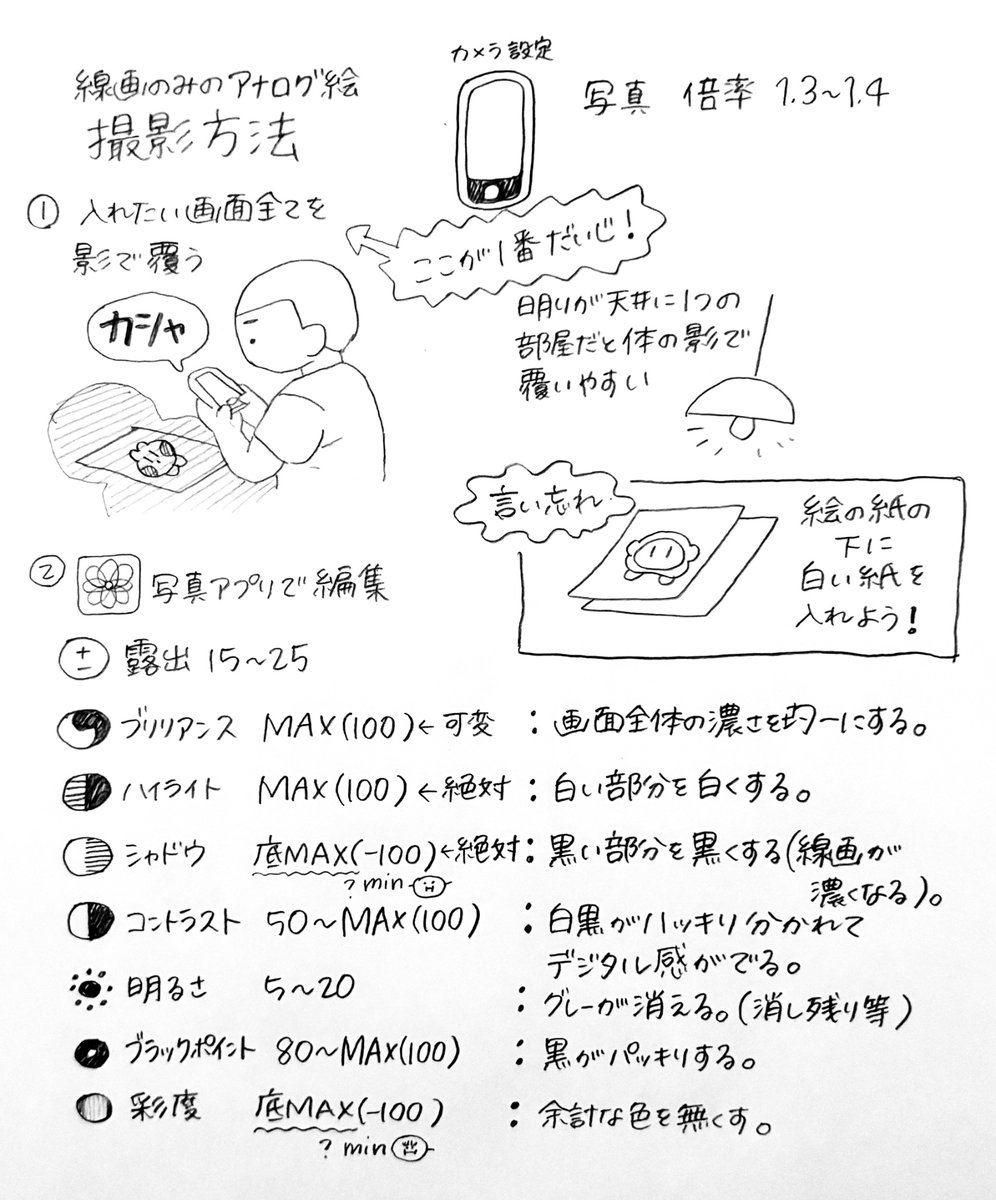 線画のみのアナログ絵
撮影方法
カメラ設定
写真 倍率 1.3~1.4
① 入れたい画面全てを
影で覆う
ここが1番だいじ!
カシャ
明りが天井に1つの
部屋だと体の影で
覆いやすい
言い忘れ
絵の紙の
下に
白い紙を
入れよう!
② 写真アプリで編集
露出 15~25
ブリリアンス MAX(100)←可変 : 画面全体の濃さを均一にする。
ハイライト MAX(100)←絶対 : 白い部分を白くする。
シャドウ 底MAX(-100)←絶対 : 黒い部分を黒くする(線画が
濃くなる)。
?min
コントラスト 50~MAX(100) : 白黒がハッキリ分かれて
デジタル感がでる。
明るさ 5~20 : グレーが消える。(消し残り等)
ブラックポイント 80~MAX(100) : 黒がパッキリする。
彩度 底MAX(-100) : 余計な色を無くす。
?min